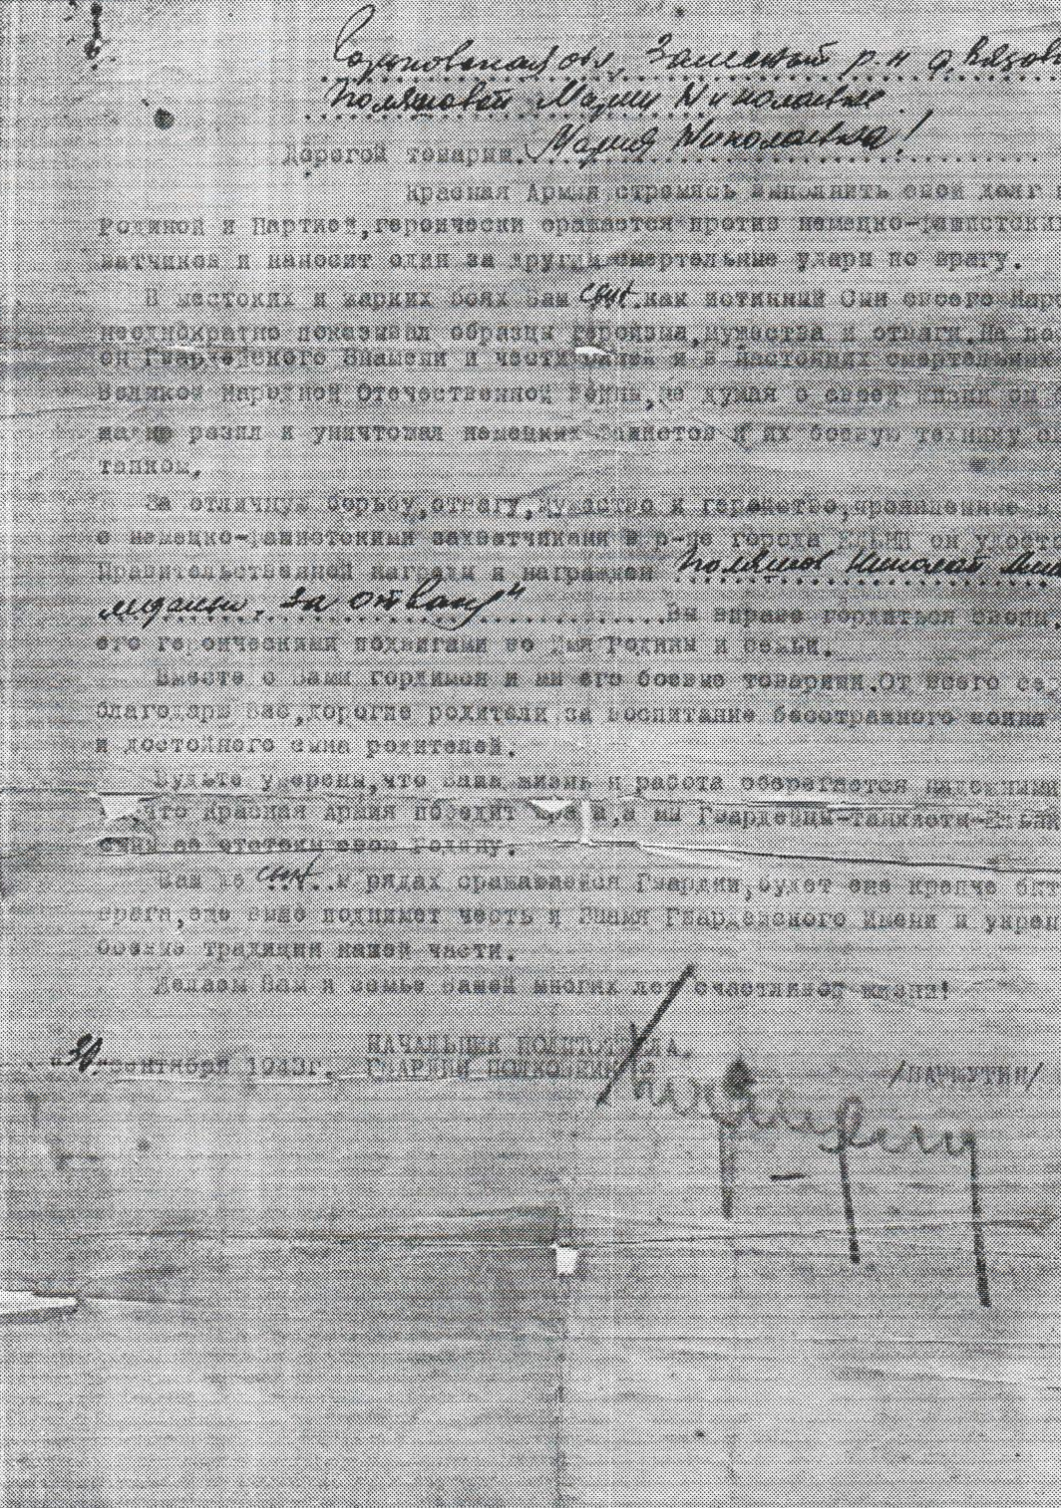 обл, р-н д.
Поляшовой Марии Николаевне
Дорогой товарищ. Мария Николаевна!
Красная Армия стремясь выполнить свой долг
Родиной и Партией,героически сражается против немецко-фашистски
ватчиков и наносит один за другим смертельные удары по врагу.
В жестоких и жарких боях Ваш сын.как истинный Сын своего Нар
неоднократно показывал образцы героизма,мужества и отваги.На
он Гвардейского Знамени и чести и в настоящих смертельных
Великой Народной Отечественной Войны,не думая о своей жизни он
разил и уничтожал немецких фашистов и их боевую технику
танком.
За отличную борьбу,отвагу,мужество и геройство,проявленные
с немецко-фашистскими захватчиками в р-не города ЕЛЬНИ он удост
Правительственной награды и награжден Поляшов Николай Мих
медалью. "За отвагу"..........Вы вправе гордиться своим.
его героическими подвигами во Имя Родины и семьи.
Вместе с Вами гордимся и мы его боевые товарищи.От всего се
благодарю Вас,дорогие родители за воспитание бесстрашного воина
и достойного сына родителей.
Будьте уверены,что Ваша жизнь и работа оберегается надежными
что Красная Армия победит врага,а мы Гвардейцы-танкисты-Ельни
свою Родину.
Ваш же сын..в рядах сражающейся Гвардии,будет еще крепче бит
врага,еще выше поднимет честь и Знамя Гвардейского Имени и укреп
боевые традиции нашей части.
Желаем Вам и семье Вашей многих лет счастливой жизни!
НАЧАЛЬНИК ПОЛИТОТДЕЛА.
"30"сентября 1943г. ГВАРДИИ ПОЛКОВНИК /ПАЧКУТИН/